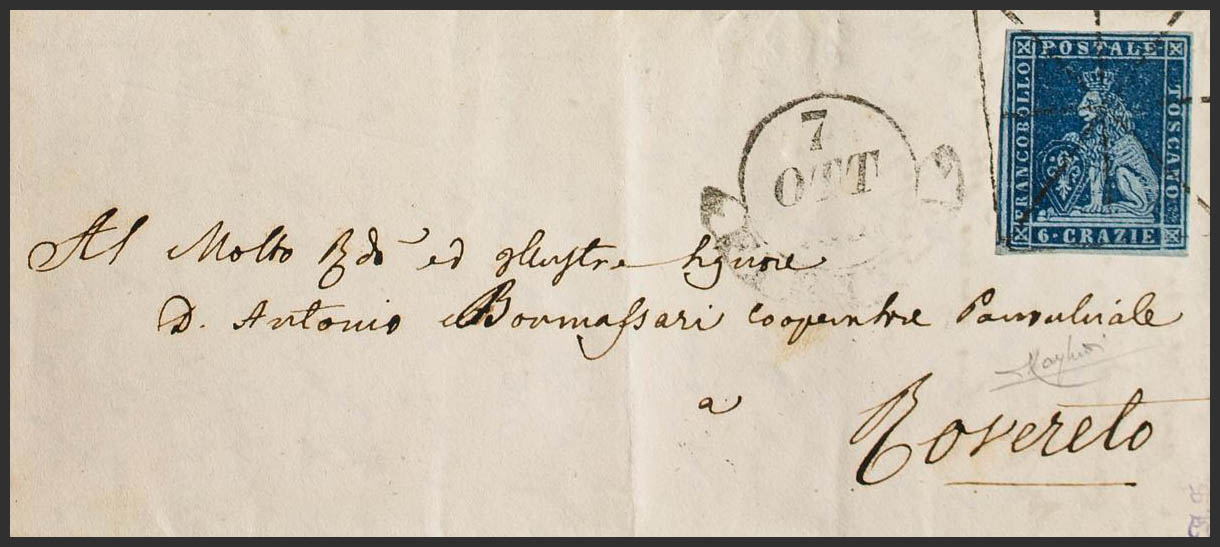 FRANCOBOLLO
POSTALE
TOSCANO
6·CRAZIE
7
OTT
Al Molto Rdo ed Illustre Signore
D. Antonio Bonmassari cooperatore Parochiale
a
Rovereto